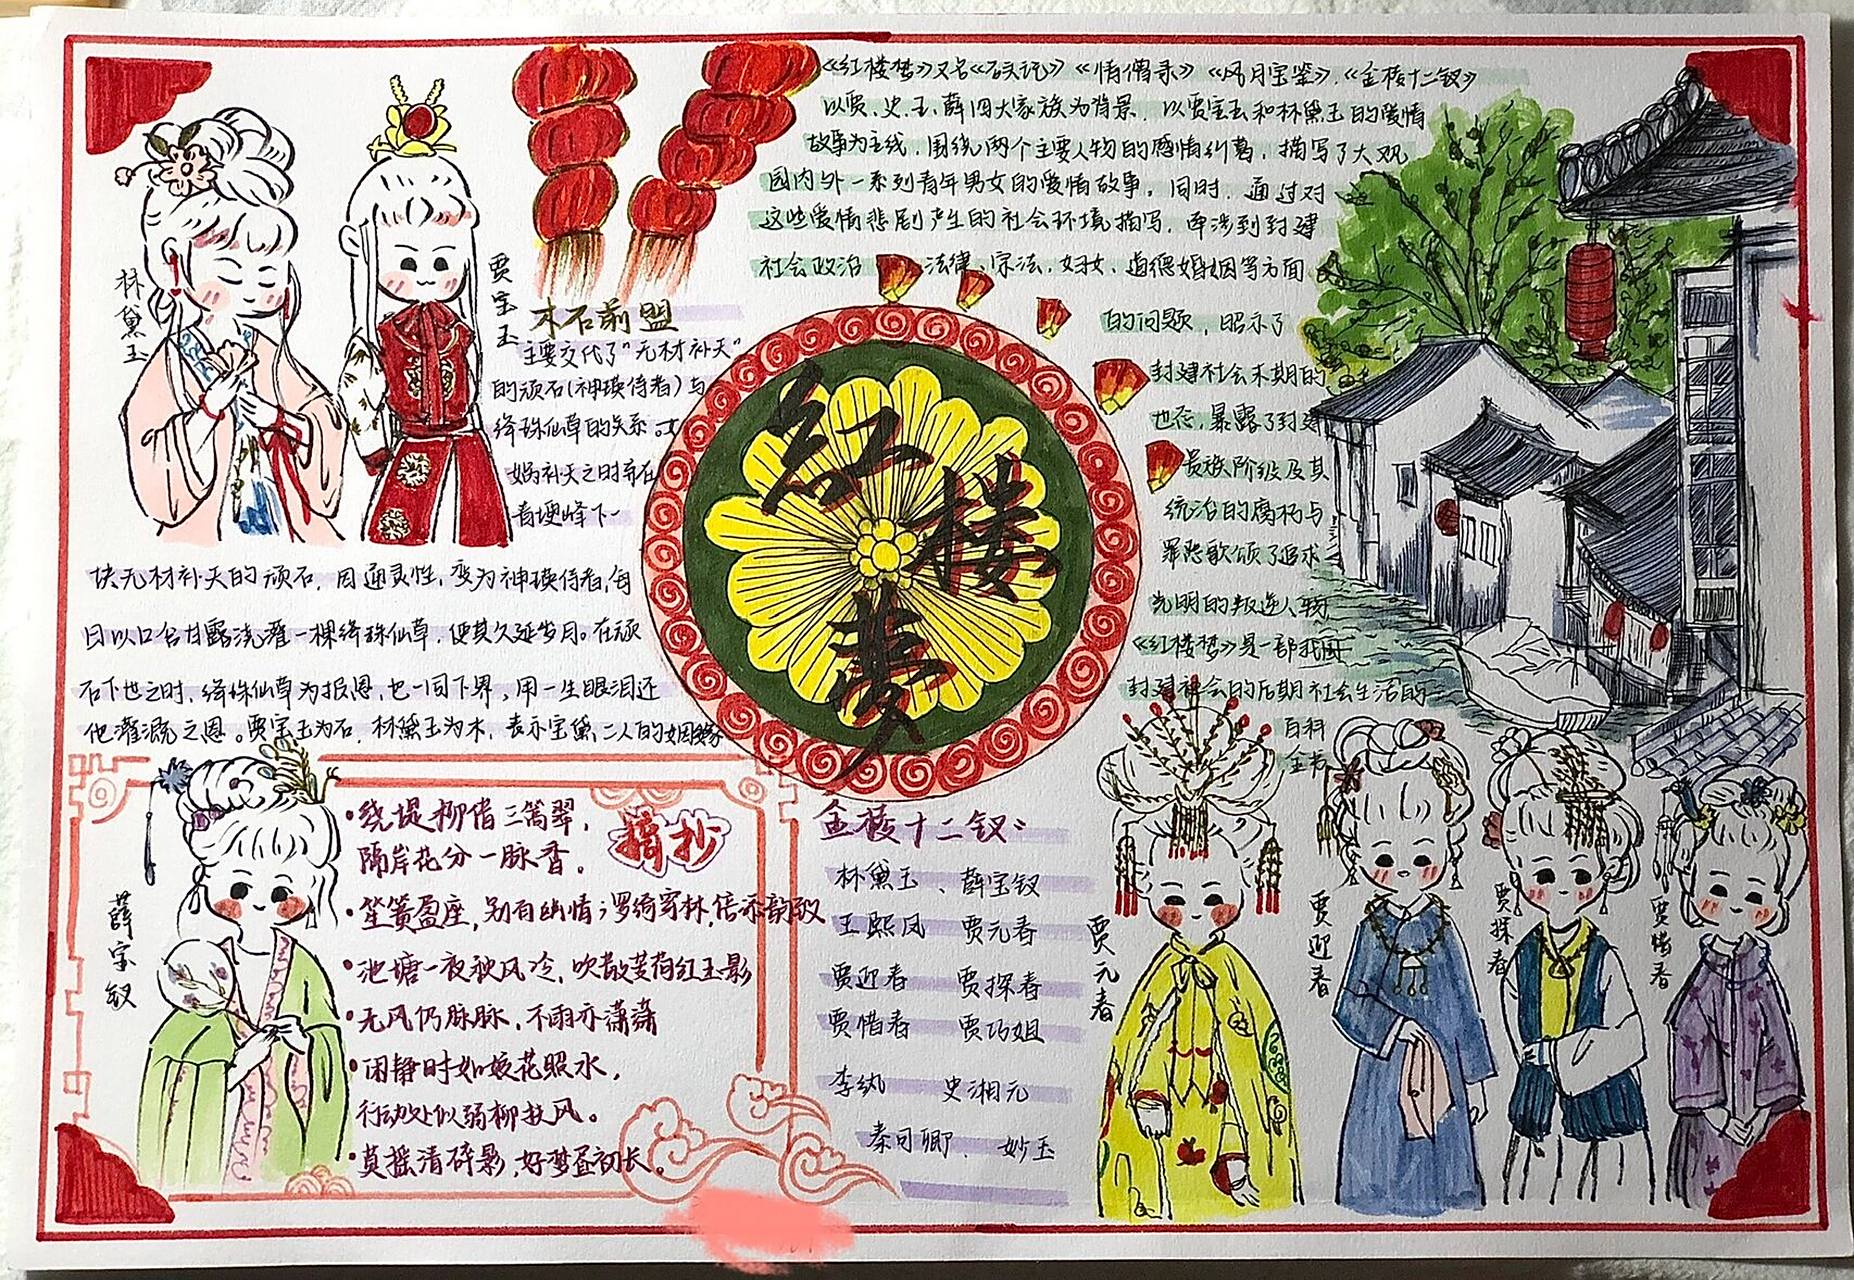 红楼梦
《红楼梦》又名《石头记》《情僧录》《风月宝鉴》.《金陵十二钗》
以贾、史.王、薛四大家族为背景，以贾宝玉和林黛玉的爱情
故事为主线，围绕两个主要人物的感情纠葛，描写了大观
园内外一系列青年男女的爱情故事，同时，通过对
这些爱情悲剧产生的社会环境描写，牵涉到封建
社会政治、法律、宗法、妇女、道德婚姻等方面
的问题，昭示了
封建社会末期的
世态，暴露了封建
贵族阶级及其
统治的腐朽与
罪恶歌颂了追求
光明的叛逆人物
《红楼梦》是一部我国
封建社会的后期社会生活的
百科
全书
林黛玉
贾宝玉
木石前盟
主要交代了"无材补天"
的顽石(神瑛侍者)与
绛珠仙草的关系.女
娲补天之时弃在
青埂峰下一
块无材补天的顽石，因通灵性，变为神瑛侍者，每
日以口含甘露浇灌一棵绛珠仙草，使其久延岁月。在顽
石下世之时，绛珠仙草为报恩，也一同下界，用一生眼泪还
他灌溉之恩。贾宝玉为石，林黛玉为木，表示宝黛二人的姻缘
薛宝钗
摘抄
·绕堤柳借三篙翠，
隔岸花分一脉香。
·笙簧盈座，别有幽情；罗绮穿林，倍添韵致
·池塘一夜秋风冷，吹散芰荷红玉影
·无风仍脉脉，不雨亦潇潇
·闲静时如姣花照水，
行动处似弱柳扶风。
·莫摇清碎影，好梦昼初长。
金陵十二钗：
林黛玉、薛宝钗
王熙凤 贾元春
贾迎春 贾探春
贾惜春 贾巧姐
李纨 史湘元
秦可卿、妙玉
贾元春
贾迎春
贾探春
贾惜春